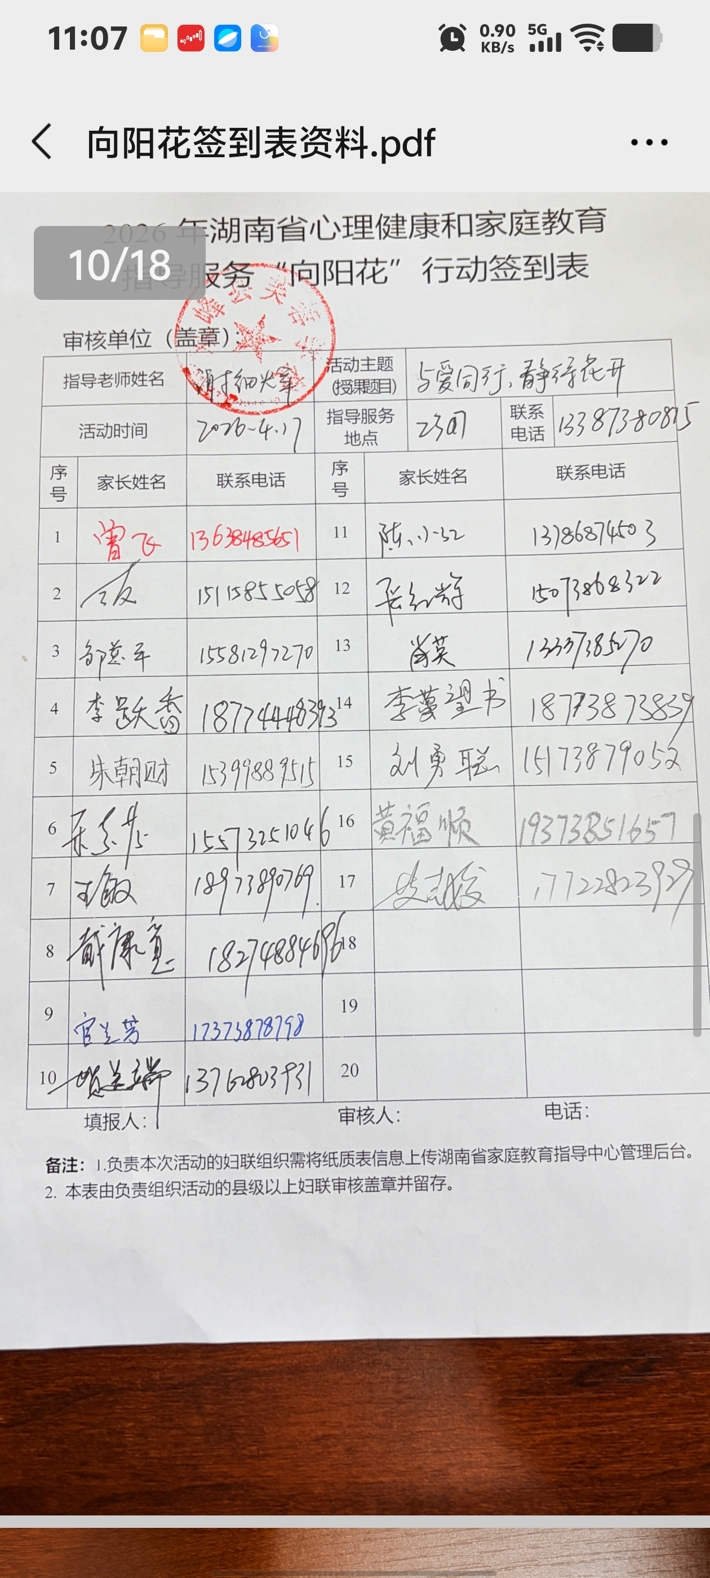 11:07
0.90 KB/s 5G
向阳花签到表资料.pdf
10/18
2026 年湖南省心理健康和家庭教育
指导服务“向阳花”行动签到表
审核单位（盖章）：
指导老师姓名 活动主题（授课题目） 与爱同行、静待花开
活动时间 2026-4.17 指导服务地点 联系电话 13387380815
序号 家长姓名 联系电话 序号 家长姓名 联系电话
1 曾飞 13638485651 11 陈小红 13786874503
2 15115855058 12 15073868322
3 15581297270 13 13337385270
4 李跃香 18774448393 14 李萝望书 18773873839
5 朱朝财 15399889515 15 刘勇聪 15173879052
6 15573251046 16 黄福顺 19373851657
7 王敏 18973890769 17 17722823929
8 戴康 18274884696 18
9 官兰芳 17373878798 19
10 13762803931 20
填报人： 审核人： 电话：
备注：1.负责本次活动的妇联组织需将纸质表信息上传湖南省家庭教育指导中心管理后台。
2. 本表由负责组织活动的县级以上妇联审核盖章并留存。